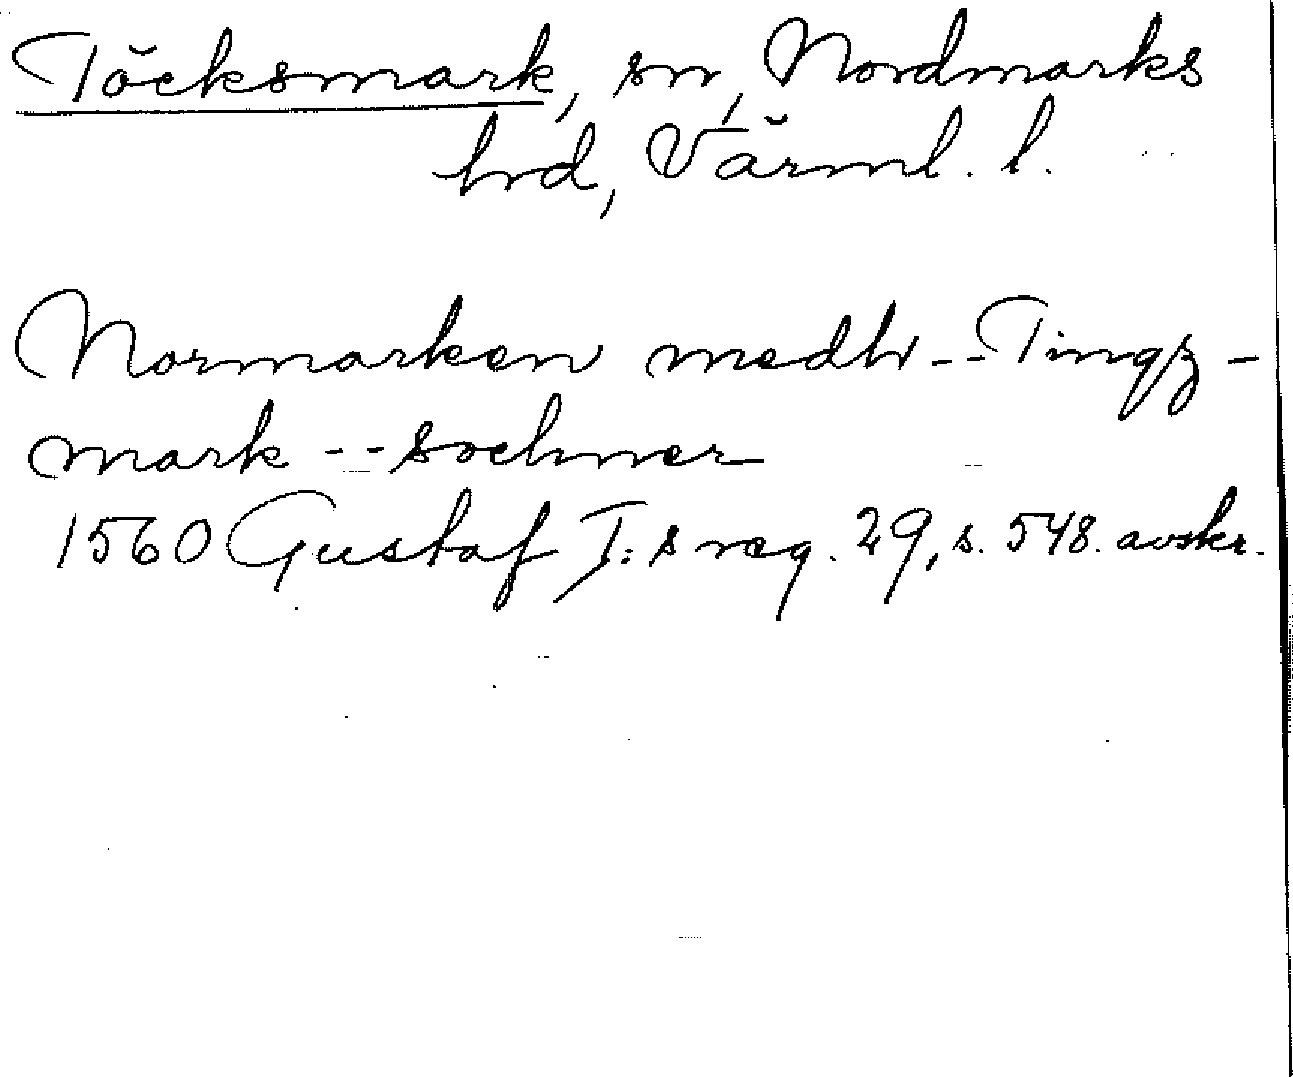 Töcksmark, sn, Nordmarks
hrd, Värml. l.
Normarken medh -- Tingz-
mark -- sochner
1560 Gustaf I:s reg. 29, s. 548. avskr.